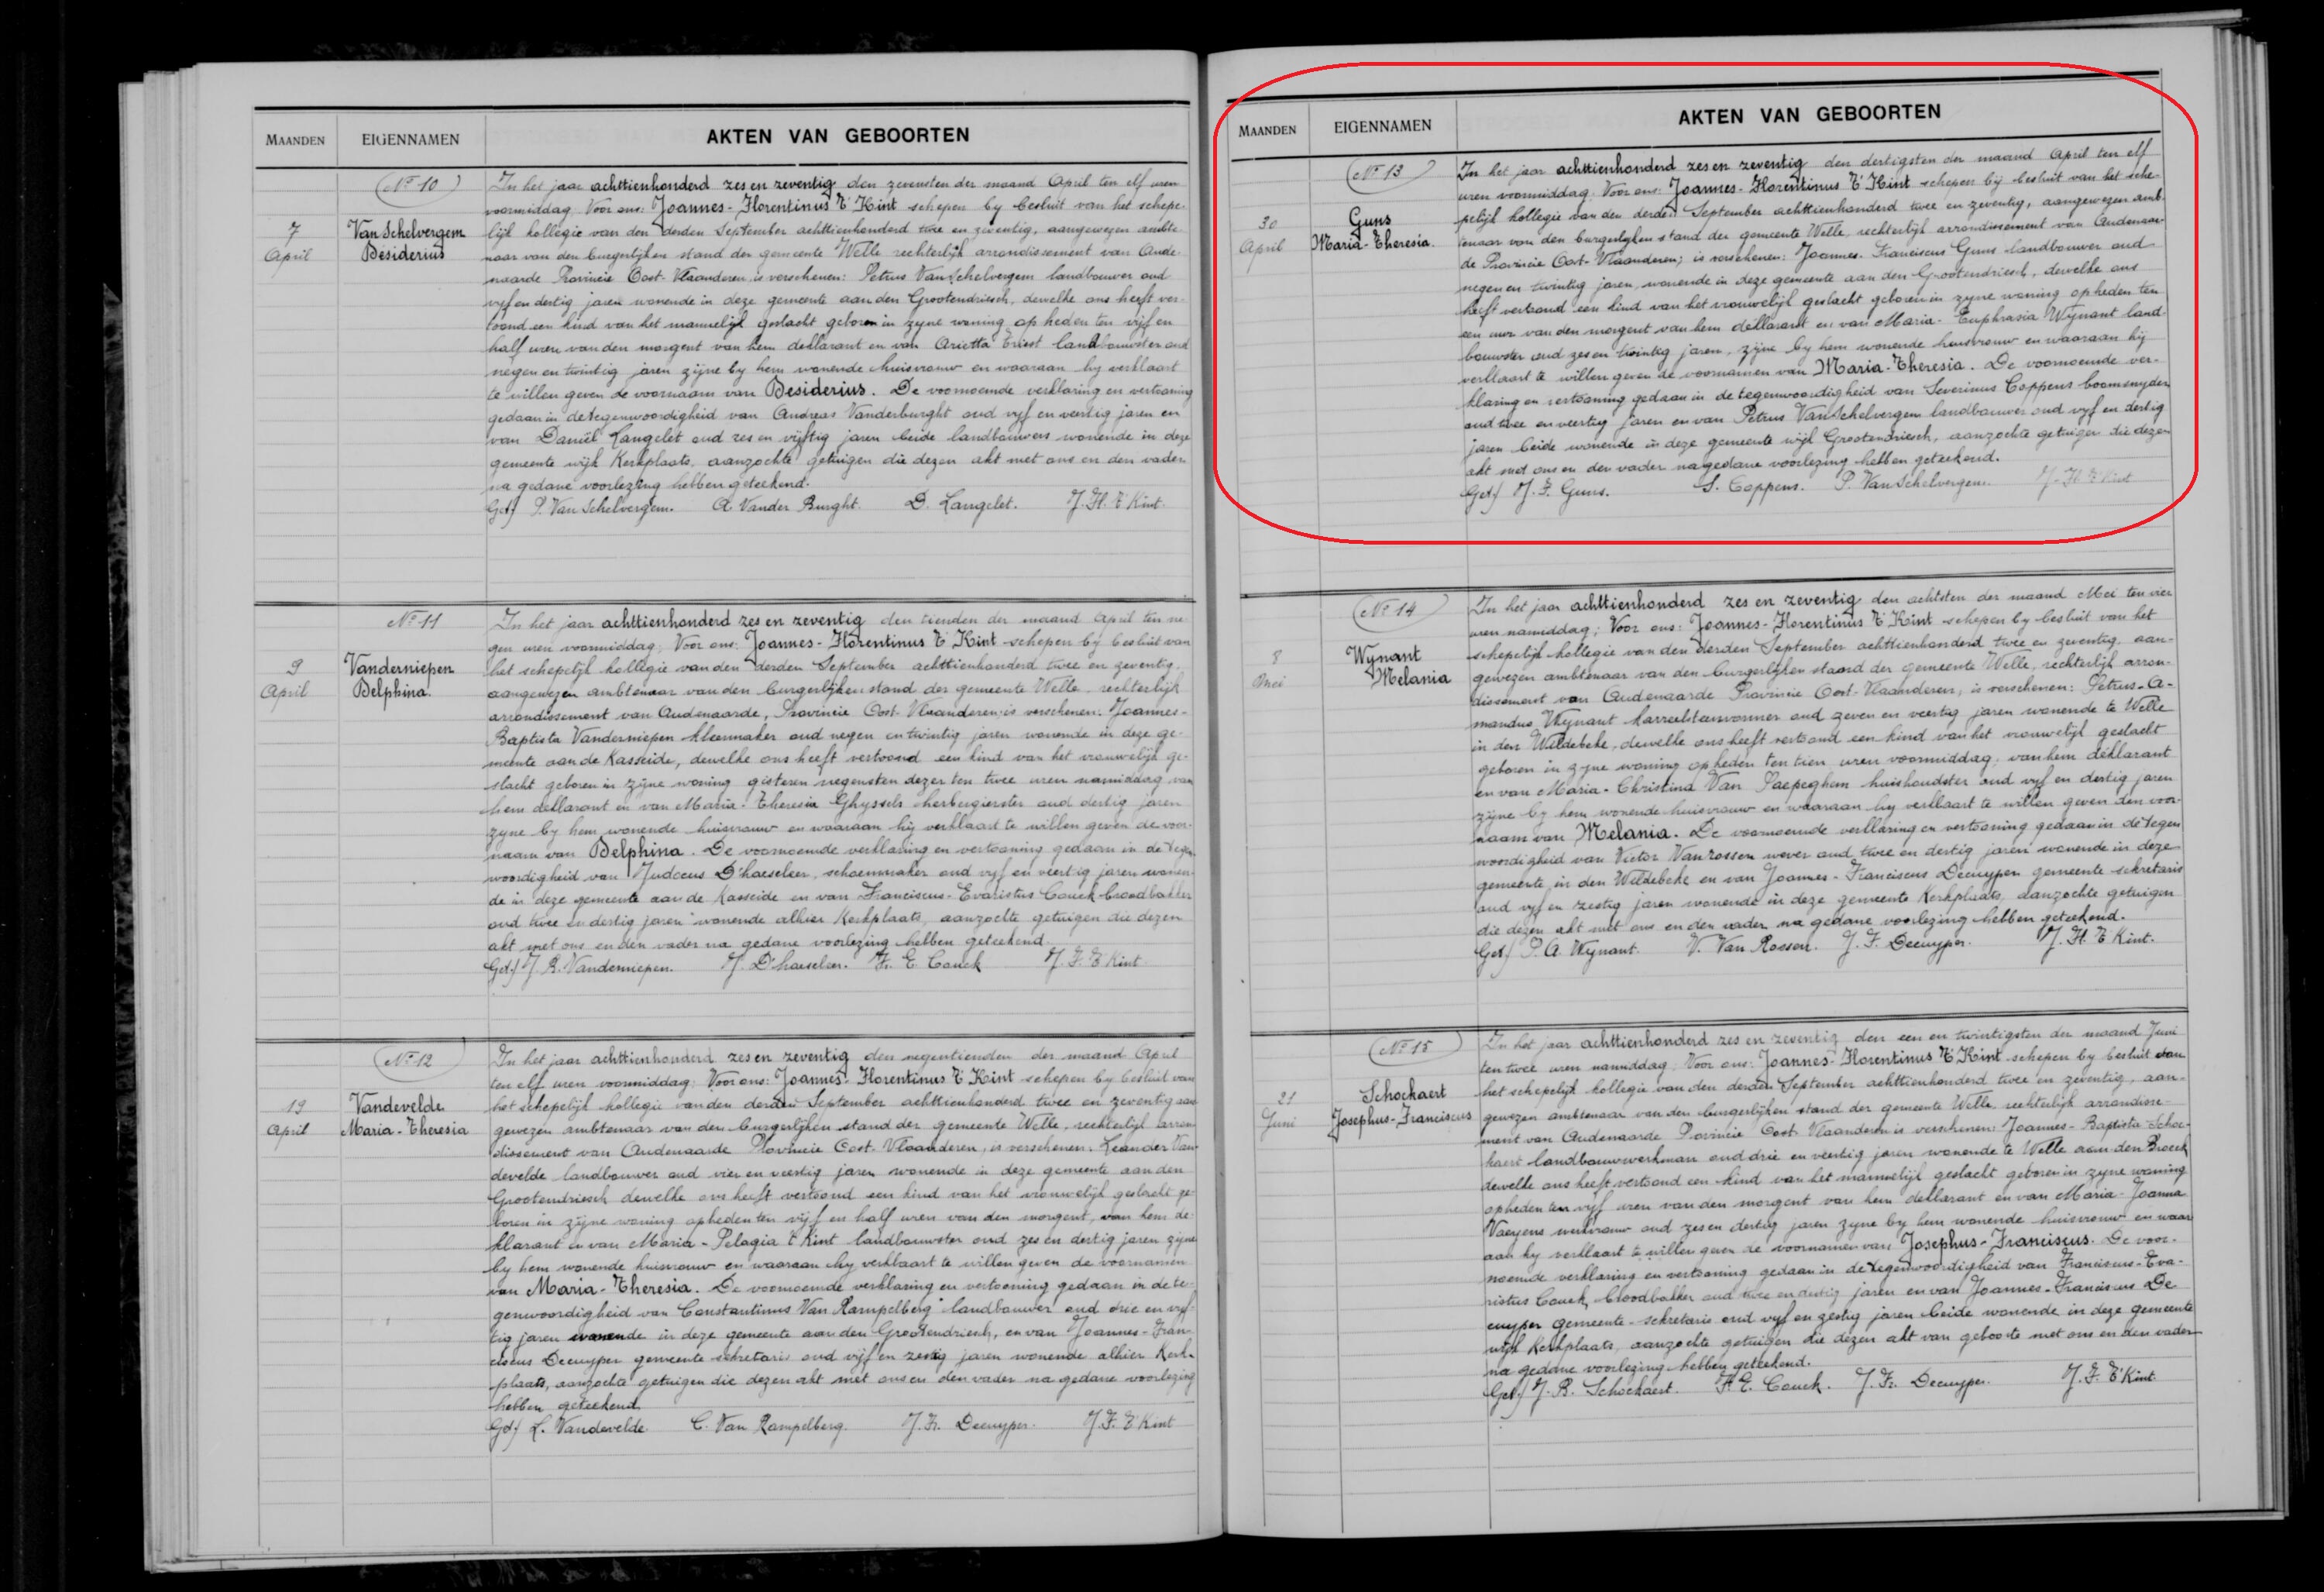 MAANDEN EIGENNAMEN AKTEN VAN GEBOORTEN
No 10
7 April
Van Schelvergem
Desiderius
In het jaar achttienhonderd zes en zeventig den zevensten der maand April ten elf uren
voormiddag. Voor ons: Joannes-Florentinus T'Kint schepen by besluit van het schepe-
lijk kollegie van den derden September achttienhonderd twee en zeventig, aangewezen ambte-
naar van den burgerlijken stand der gemeente Welle rechterlijk arrondissement van Aude-
naarde Provincie Oost-Vlaanderen, is verschenen: Petrus Van Schelvergem landbouwer oud
vyf en dertig jaren wonende in deze gemeente aan den Grootendriesch, dewelke ons heeft ver-
toond een kind van het mannelijk geslacht geboren in zyne woning op heden ten vijf en
half uren van den morgent van hem deklarant en van Arietta Eriest landbouwster oud
negen en twintig jaren zijne by hem wonende huisvrouw en waaraan hy verklaart
te willen geven de voornaam van Desiderius. De voornoemde verklaring en vertoning
gedaan in de tegenwoordigheid van Andreas Vanderburght oud vyf en veertig jaren en
van Daniël Langelet oud zes en vijftig jaren beide landbouwers wonende in deze
gemeente wijk Kerkplaats, aanzochte getuigen die dezen akt met ons en den vader
na gedane voorlezing hebben geteekend.
Get/ P. Van Schelvergem. A. Vander Burght. D. Langelet. J. Fl. T'Kint.
No 11
9 April
Vanderniepen
Delphina.
In het jaar achttienhonderd zes en zeventig den tienden der maand April ten ne-
gen uren voormiddag, Voor ons: Joannes-Florentinus T'Kint schepen by besluit van
het schepelijk kollegie van den derden September achttienhonderd twee en zeventig,
aangewezen ambtenaar van den burgerlijken stand der gemeente Welle, rechterlijk
arrondissement van Audenaarde, Provincie Oost-Vlaanderen, is verschenen: Joannes-
Baptista Vanderniepen kleermaker oud negen en twintig jaren wonende in deze ge-
meente aan de Kasseide, dewelke ons heeft vertoond een kind van het vrouwelijk ge-
slacht geboren in zijne woning gisteren negensten dezer ten twee uren namiddag van
hem deklarant en van Maria-Theresia Ghyssels herbergierster oud dertig jaren
zyne by hem wonende huisvrouw en waaraan hij verklaart te willen geven de voor-
naam van Delphina. De voornoemde verklaring en vertooning gedaan in de tegen-
woordigheid van Judocus D'haeseleer, schoenmaker oud vyf en veertig jaren wonen-
de in deze gemeente aan de Kasseide en van Franciscus-Evaristus Couck broodbakker
oud twee en dertig jaren wonende alhier Kerkplaats, aanzochte getuigen die dezen
akt met ons en den vader na gedane voorlezing hebben geteekend.
Get/ J. B. Vanderniepen. J. D'haeseleer. Fr. E. Couck J. F. T'Kint
No 12
19 April
Vandevelde
Maria-Theresia
In het jaar achttienhonderd zes en zeventig den negentienden der maand April
ten elf uren voormiddag; Voor ons: Joannes-Florentinus T'Kint schepen by besluit van
het schepelijk kollegie van den derden September achttienhonderd twee en zeventig aan-
gewezen ambtenaar van den burgerlijken stand der gemeente Welle, rechterlijk arron-
dissement van Audenaarde Provincie Oost-Vlaanderen, is verschenen: Leander Van-
develde landbouwer oud vier en veertig jaren wonende in deze gemeente aan den
Grootendriesch dewelke ons heeft vertoond een kind van het vrouwelijk geslacht ge-
boren in zijne woning op heden ten vijf en half uren van den morgent, van hem de-
klarant en van Maria-Pelagia T'Kint landbouwster oud zes en dertig jaren zijne
by hem wonende huisvrouw en waaraan hy verklaart te willen geven de voornamen
van Maria-Theresia. De voornoemde verklaring en vertooning gedaan in de te-
genwoordigheid van Constantinus Van Rampelberg landbouwer oud drie en vyf-
tig jaren wonende in deze gemeente aan den Grootendriesch, en van Joannes-Fran-
ciscus Decuyper gemeente sekretaris oud vijf en zestig jaren wonende alhier Kerk-
plaats, aanzochte getuigen die dezen akt met ons en den vader na gedane voorlezing
hebben geteekend.
Get/ L. Vandevelde. C. Van Rampelberg. J. Fr. Decuyper. J. F. T'Kint
MAANDEN EIGENNAMEN AKTEN VAN GEBOORTEN
No 13
30 April
Guns
Maria-Theresia.
In het jaar achttienhonderd zes en zeventig den dertigsten der maand April ten elf
uren voormiddag. Voor ons: Joannes-Florentinus T'Kint schepen bij besluit van het sche-
pelijk kollegie van den derden September achttienhonderd twee en zeventig, aangewezen amb-
tenaar van den burgerlyken stand der gemeente Welle, rechterlijk arrondissement van Audenaar-
de Provincie Oost-Vlaanderen; is verschenen: Joannes-Franciscus Guns landbouwer oud
negen en twintig jaren, wonende in deze gemeente aan den Grootendriesch, dewelke ons
heeft vertoond een kind van het vrouwelijk geslacht geboren in zyne woning op heden ten
een uur van den morgent van hem deklarant en van Maria-Euphrasia Wynant land-
bouwster oud zes en twintig jaren, zijne by hem wonende huisvrouw en waaraan hij
verklaart te willen geven de voornamen van Maria-Theresia. De voornoemde ver-
klaring en vertooning gedaan in de tegenwoordigheid van Severinus Coppens boomsnyder
oud twee en veertig jaren en van Petrus Van Schelvergem landbouwer oud vyf en dertig
jaren beide wonende in deze gemeente wijk Grootendriesch, aanzochte getuigen die dezen
akt met ons en den vader na gedane voorlezing hebben geteekend.
Get/ J. F. Guns. S. Coppens. P. Van Schelvergem. J. Fl. T'Kint
No 14
8 Mei
Wynant
Melania
In het jaar achttienhonderd zes en zeventig den achtsten der maand Mei ten vier
uren namiddag; Voor ons: Joannes-Florentinus T'Kint schepen by besluit van het
schepelijk kollegie van den derden September achttienhonderd twee en zeventig, aan-
gewezen ambtenaar van den burgerlyken staand der gemeente Welle, rechterlijk arron-
dissement van Audenaarde Provincie Oost-Vlaanderen, is verschenen: Petrus-A-
mandus Wynant karreelsteenvormer oud zeven en veertig jaren wonende te Welle
in den Wildebeke, dewelke ons heeft vertoond een kind van het vrouwelijk geslacht
geboren in zyne woning op heden ten tien uren voormiddag, van hem deklarant
en van Maria-Christina Van Paepeghem huishoudster oud vyf en dertig jaren
zijne by hem wonende huisvrouw en waaraan hy verklaart te willen geven den voor-
naam van Melania. De voornoemde verklaring en vertooning gedaan in de tegen
woordigheid van Victor Vanrossem wever oud twee en dertig jaren wonende in deze
gemeente in den Wildebeke en van Joannes-Franciscus Decuyper gemeente sekretaris
oud vyf en zestig jaren wonende in deze gemeente Kerkplaats, aanzochte getuigen
die dezen akt met ons en den vader na gedane voorlezing hebben geteekend.
Get/ P. A. Wynant. V. Van Rossem. J. F. Decuyper. J. Fl. T'Kint.
No 15
21 Juni
Schockaert
Josephus-Franciscus
In het jaar achttienhonderd zes en zeventig den een en twintigsten der maand Juni
ten twee uren namiddag; Voor ons: Joannes-Florentinus T'Kint schepen by besluit van
het schepelijk kollegie van den derden September achttienhonderd twee en zeventig, aan-
gewezen ambtenaar van den burgerlyken stand der gemeente Welle, rechterlijk arrondisse-
ment van Audenaarde Provincie Oost Vlaanderen is verschenen: Joannes-Baptista Schoc-
kaert landbouwwerkman oud drie en veertig jaren wonende te Welle aan den Broeck
dewelke ons heeft vertoond een kind van het mannelijk geslacht geboren in zyne woning
op heden ten vyf uren van den morgent van hem deklarant en van Maria-Joanna
Vaeyens werkvrouw oud zes en dertig jaren zyne by hem wonende huisvrouw en waar
aan hy verklaart te willen geven de voornamen van Josephus-Franciscus. De voor-
noemde verklaring en vertooning gedaan in de tegenwoordigheid van Franciscus-Eva-
ristus Couck, bloodbakker oud twee en dertig jaren en van Joannes-Franciscus De
cuyper gemeente-sekretaris oud vyf en zestig jaren beide wonende in deze gemeente
wijk Kerkplaats, aanzochte getuigen die dezen akt van geboorte met ons en den vader
na gedane voorlezing hebben geteekend.
Get/ J. B. Schockaert. F. E. Couck. J. Fr. Decuyper. J. F. T'Kint.